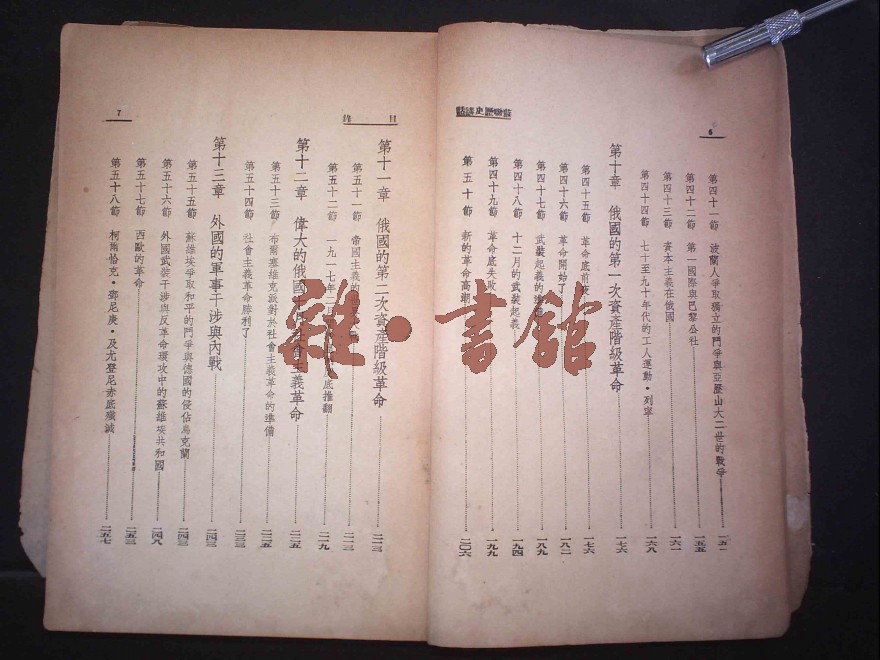 蘇聯歷史講話
6
第四十一節 波蘭人爭取獨立的鬥爭與亞歷山大二世的戰爭 一五一
第四十二節 第一國際與巴黎公社 一五五
第四十三節 資本主義在俄國 一六一
第四十四節 七十至九十年代的工人運動・列寧 一六八
第十章 俄國的第一次資產階級革命 一七六
第四十五節 革命底前夜 一七六
第四十六節 革命開始了 一八二
第四十七節 武裝起義的 一八九
第四十八節 十二月的武裝起義 一九四
第四十九節 革命底失敗 一九九
第五十節 新的革命高潮 二〇六
目錄
7
第十一章 俄國的第二次資產階級革命 二一三
第五十一節 帝國主義的世界 二一三
第五十二節 一九一七年二月 底推翻 二一九
第十二章 偉大的俄國十月社會主義革命 二二五
第五十三節 布爾塞維克派對於社會主義革命的準備 二二五
第五十四節 社會主義革命勝利了 二三三
第十三章 外國的軍事干涉與內戰 二四三
第五十五節 蘇維埃爭取和平的鬥爭與德國的侵佔烏克蘭 二四三
第五十六節 外國武裝干涉與反革命環攻中的蘇維埃共和國 二四八
第五十七節 西歐的革命 二五三
第五十八節 柯爾恰克・鄧尼庚・及尤登尼赤底殲滅 二五七
雜・書館